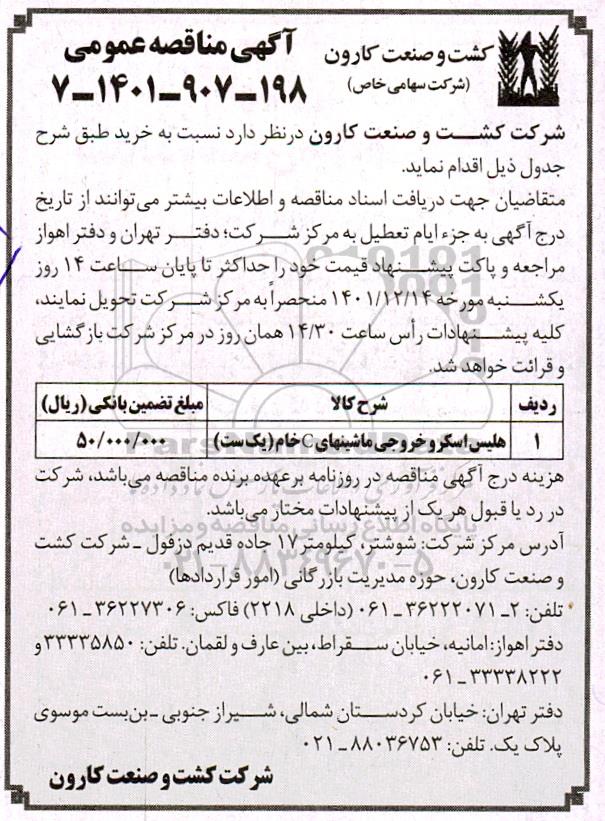 کشت و صنعت کارون
(شرکت سهامی خاص)
آگهی مناقصه عمومی
۷-۱۴۰۱-۹۰۷-۱۹۸
شرکت کشت و صنعت کارون درنظر دارد نسبت به خرید طبق شرح
جدول ذیل اقدام نماید.
متقاضیان جهت دریافت اسناد مناقصه و اطلاعات بیشتر می‌توانند از تاریخ
درج آگهی به جزء ایام تعطیل به مرکز شرکت؛ دفتر تهران و دفتر اهواز
مراجعه و پاکت پیشنهاد قیمت خود را حداکثر تا پایان ساعت ۱۴ روز
یکشنبه مورخه ۱۴۰۱/۱۲/۱۴ منحصراً به مرکز شرکت تحویل نمایند،
کلیه پیشنهادات رأس ساعت ۱۴/۳۰ همان روز در مرکز شرکت بازگشایی
و قرائت خواهد شد.
ردیف شرح کالا مبلغ تضمین بانکی (ریال)
۱ هلیس اسکرو خروجی ماشینهای C خام (یک ست) ۵۰/۰۰۰/۰۰۰
هزینه درج آگهی مناقصه در روزنامه برعهده برنده مناقصه می‌باشد، شرکت
در رد یا قبول هر یک از پیشنهادات مختار می‌باشد.
آدرس مرکز شرکت: شوشتر، کیلومتر ۱۷ جاده قدیم دزفول - شرکت کشت
و صنعت کارون، حوزه مدیریت بازرگانی (امور قراردادها)
تلفن: ۲-۳۶۲۲۲۰۷۱-۰۶۱ (داخلی ۲۲۱۸) فاکس: ۳۶۲۲۷۳۰۶-۰۶۱
دفتر اهواز: امانیه، خیابان سقراط، بین عارف و لقمان. تلفن: ۳۳۳۳۵۸۵۰ و
۳۳۳۳۸۲۲۲-۰۶۱
دفتر تهران: خیابان کردستان شمالی، شیراز جنوبی - بن‌بست موسوی
پلاک یک. تلفن: ۸۸۰۳۶۷۵۳-۰۲۱
شرکت کشت و صنعت کارون
پایگاه اطلاع رسانی مناقصه و مزایده
۰۲۱-۸۸۳۴۹۶۷۰-۵